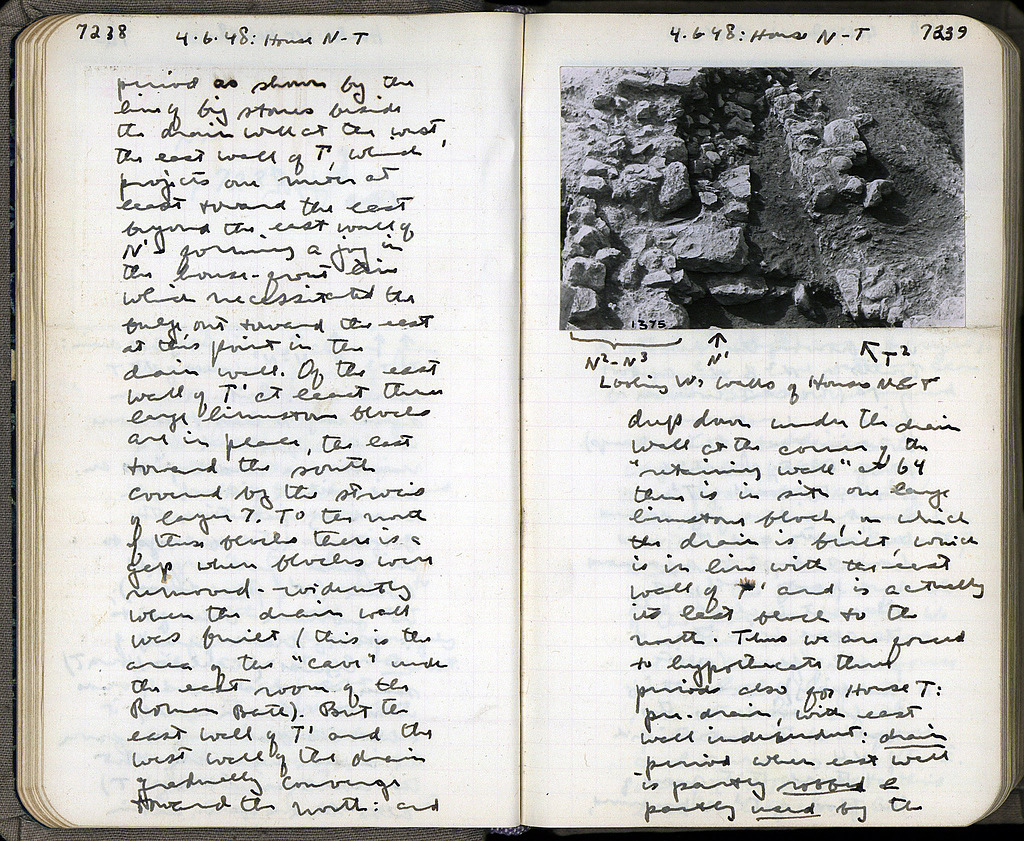 7238
4·6·48: House N-T
period as shown by the
line of big stones beside
the drain wall at the west,
the east wall of T', which
projects one meter at
least toward the east
beyond the east wall of
N' forming a jog in
the house-front line
which necessitated the
bulge out toward the east
at this point in the
drain wall. Of the east
wall of T' at least three
large limestone blocks
are in place, the last
toward the south
covered by the stereo
of layer 7. To the north
of these blocks there is a
gap where blocks were
removed - evidently
when the drain wall
was built (this is the
area of the "cave" under
the east room of the
Roman Bath). But the
east wall of T' and the
west wall of the drain
gradually converge
toward the north: and
4·6·48: House N-T
7239
1375
N²-N³
N'
T²
Looking W: walls of House N & T
deep down under the drain
wall at the corner of the
"retaining wall" at 64
there is in situ one large
limestone block, on which
the drain is built, which
is in line with the east
wall of T' and is actually
its last block to the
north. Thus we are forced
to hypothecate three
periods also for House T:
pre-drain, with east
wall independent: drain
period when east wall
is partly robbed &
partly used by the